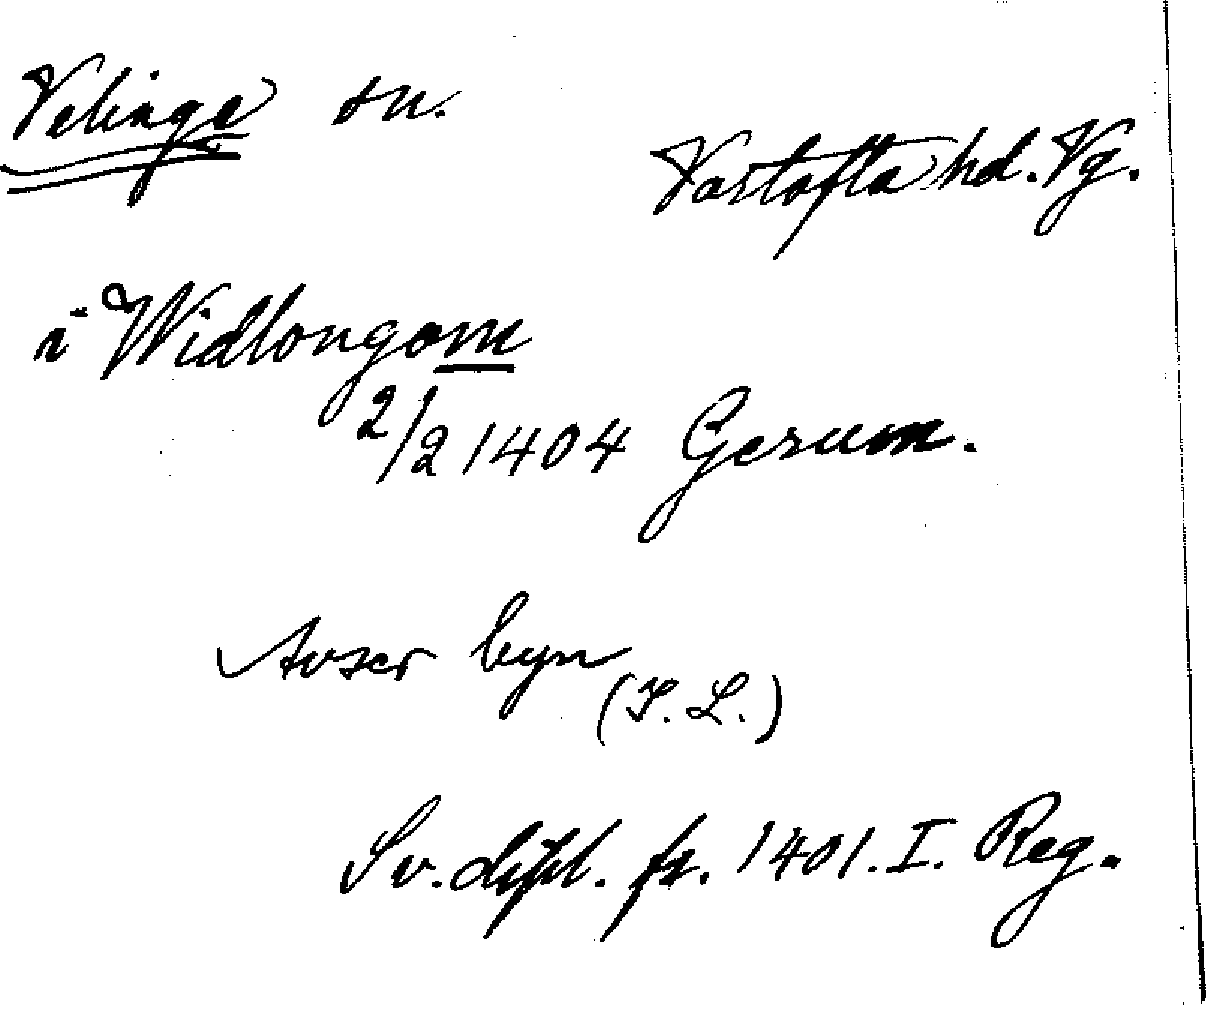 Velinga sn.
Vartofta hd. Vg.
i Widlongom
2/2 1404 Gerum.
Avser byn
(I. L.)
Sv. dipl. fr. 1401. I. Reg.